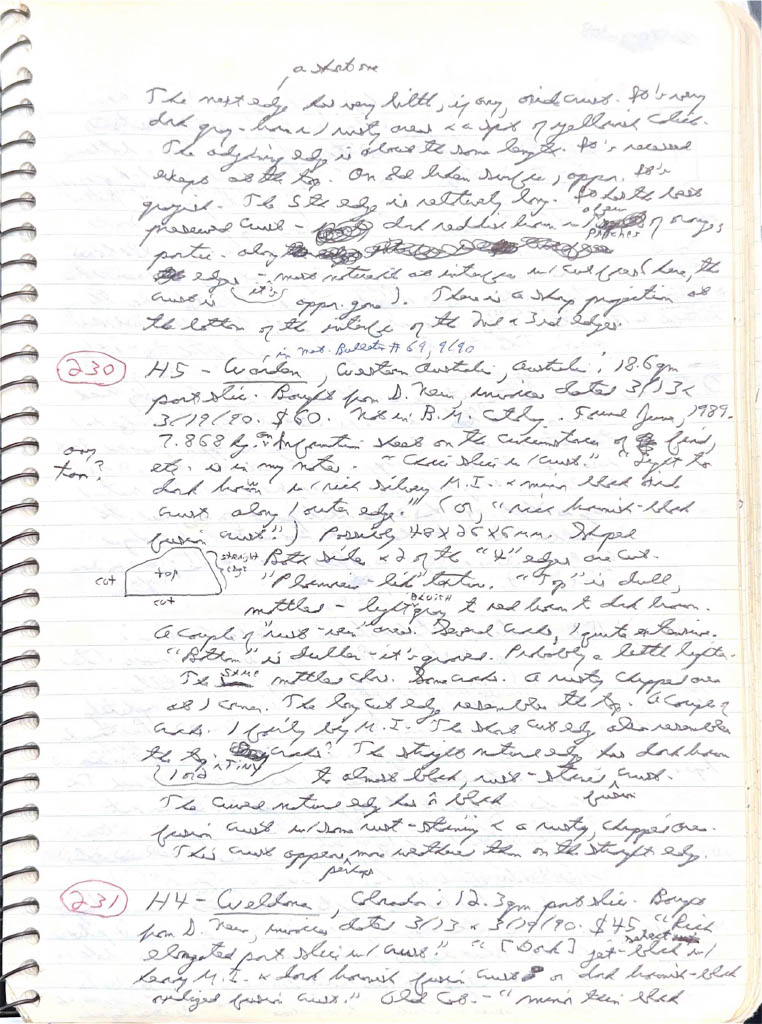 a short one
The next edge has very little, if any, oxid crust. It's very
dark gray-brown w/ rusty areas & a spot of yellowish color.
The adjoining edge is about the same length. It's recessed
except at the top. On old broken surface, appar. It's
grayish. The 5th edge is relatively long. It has the best
preserved crust - dark reddish brown w/ a few patches of orange,
partic. along
edges - most noticeable at interface w/ cut face (here, the
crust is it's appar. gone). There is a sharp projection at
the bottom of the interface of the 2nd & 3rd edges.
in Met. Bulletin #69, 9/90
230 H5 - Warden, Western Australia, Australia; 18.6gm
part slice. Bought from D. New, invoices dated 3/13 &
3/19/90. $60. Not in B.M. Catalog. Found June, 1989.
7.868 kg. Information sheet on the circumstances of find,
etc. is in my notes. "Choice slice w/ crust." "Light to
dark brown w/ rich silvery M.I. & minor black oxid
crust along 1 outer edge." (or, "rich brownish-black
fusion crust".) Possibly 48 X 26 X 6 mm. Shaped
straight edge
top
cut
cut
Both sides & 2 of the "4" edges are cut.
"Plainview-like" texture. "Top" is dull,
mottled - light gray to red brown to dark brown.
A couple of "rust-vein" areas. Several cracks, 1 quite extensive.
"Bottom" is duller - it's ground. Probably a little lighter.
The same mottled color. Some cracks. A rusty chipped area
at 1 corner. The long cut edge resembles the top. A couple of
cracks. 1 fairly big M.I. The short cut edge also resembles
the top. 1 old & tiny cracks? The straight natural edge has dark brown
to almost black, rust-stained fusion crust.
The curved natural edge has a black
fusion crust w/ some rust-staining & a rusty, chipped area.
This crust appears perhaps more weathered than on the straight edge.
231 H4 - Weldona, Colorado; 12.3gm part slice. Bought
from D. New, invoices dated 3/13 & 3/19/90. $45. "Rich
elongated part slice w/ crust." "[Dark] jet-black w/
heavy M.I. & dark brownish fusion crust or dark brownish-black
oxidized fusion crust." Old Col. - "minor thin black